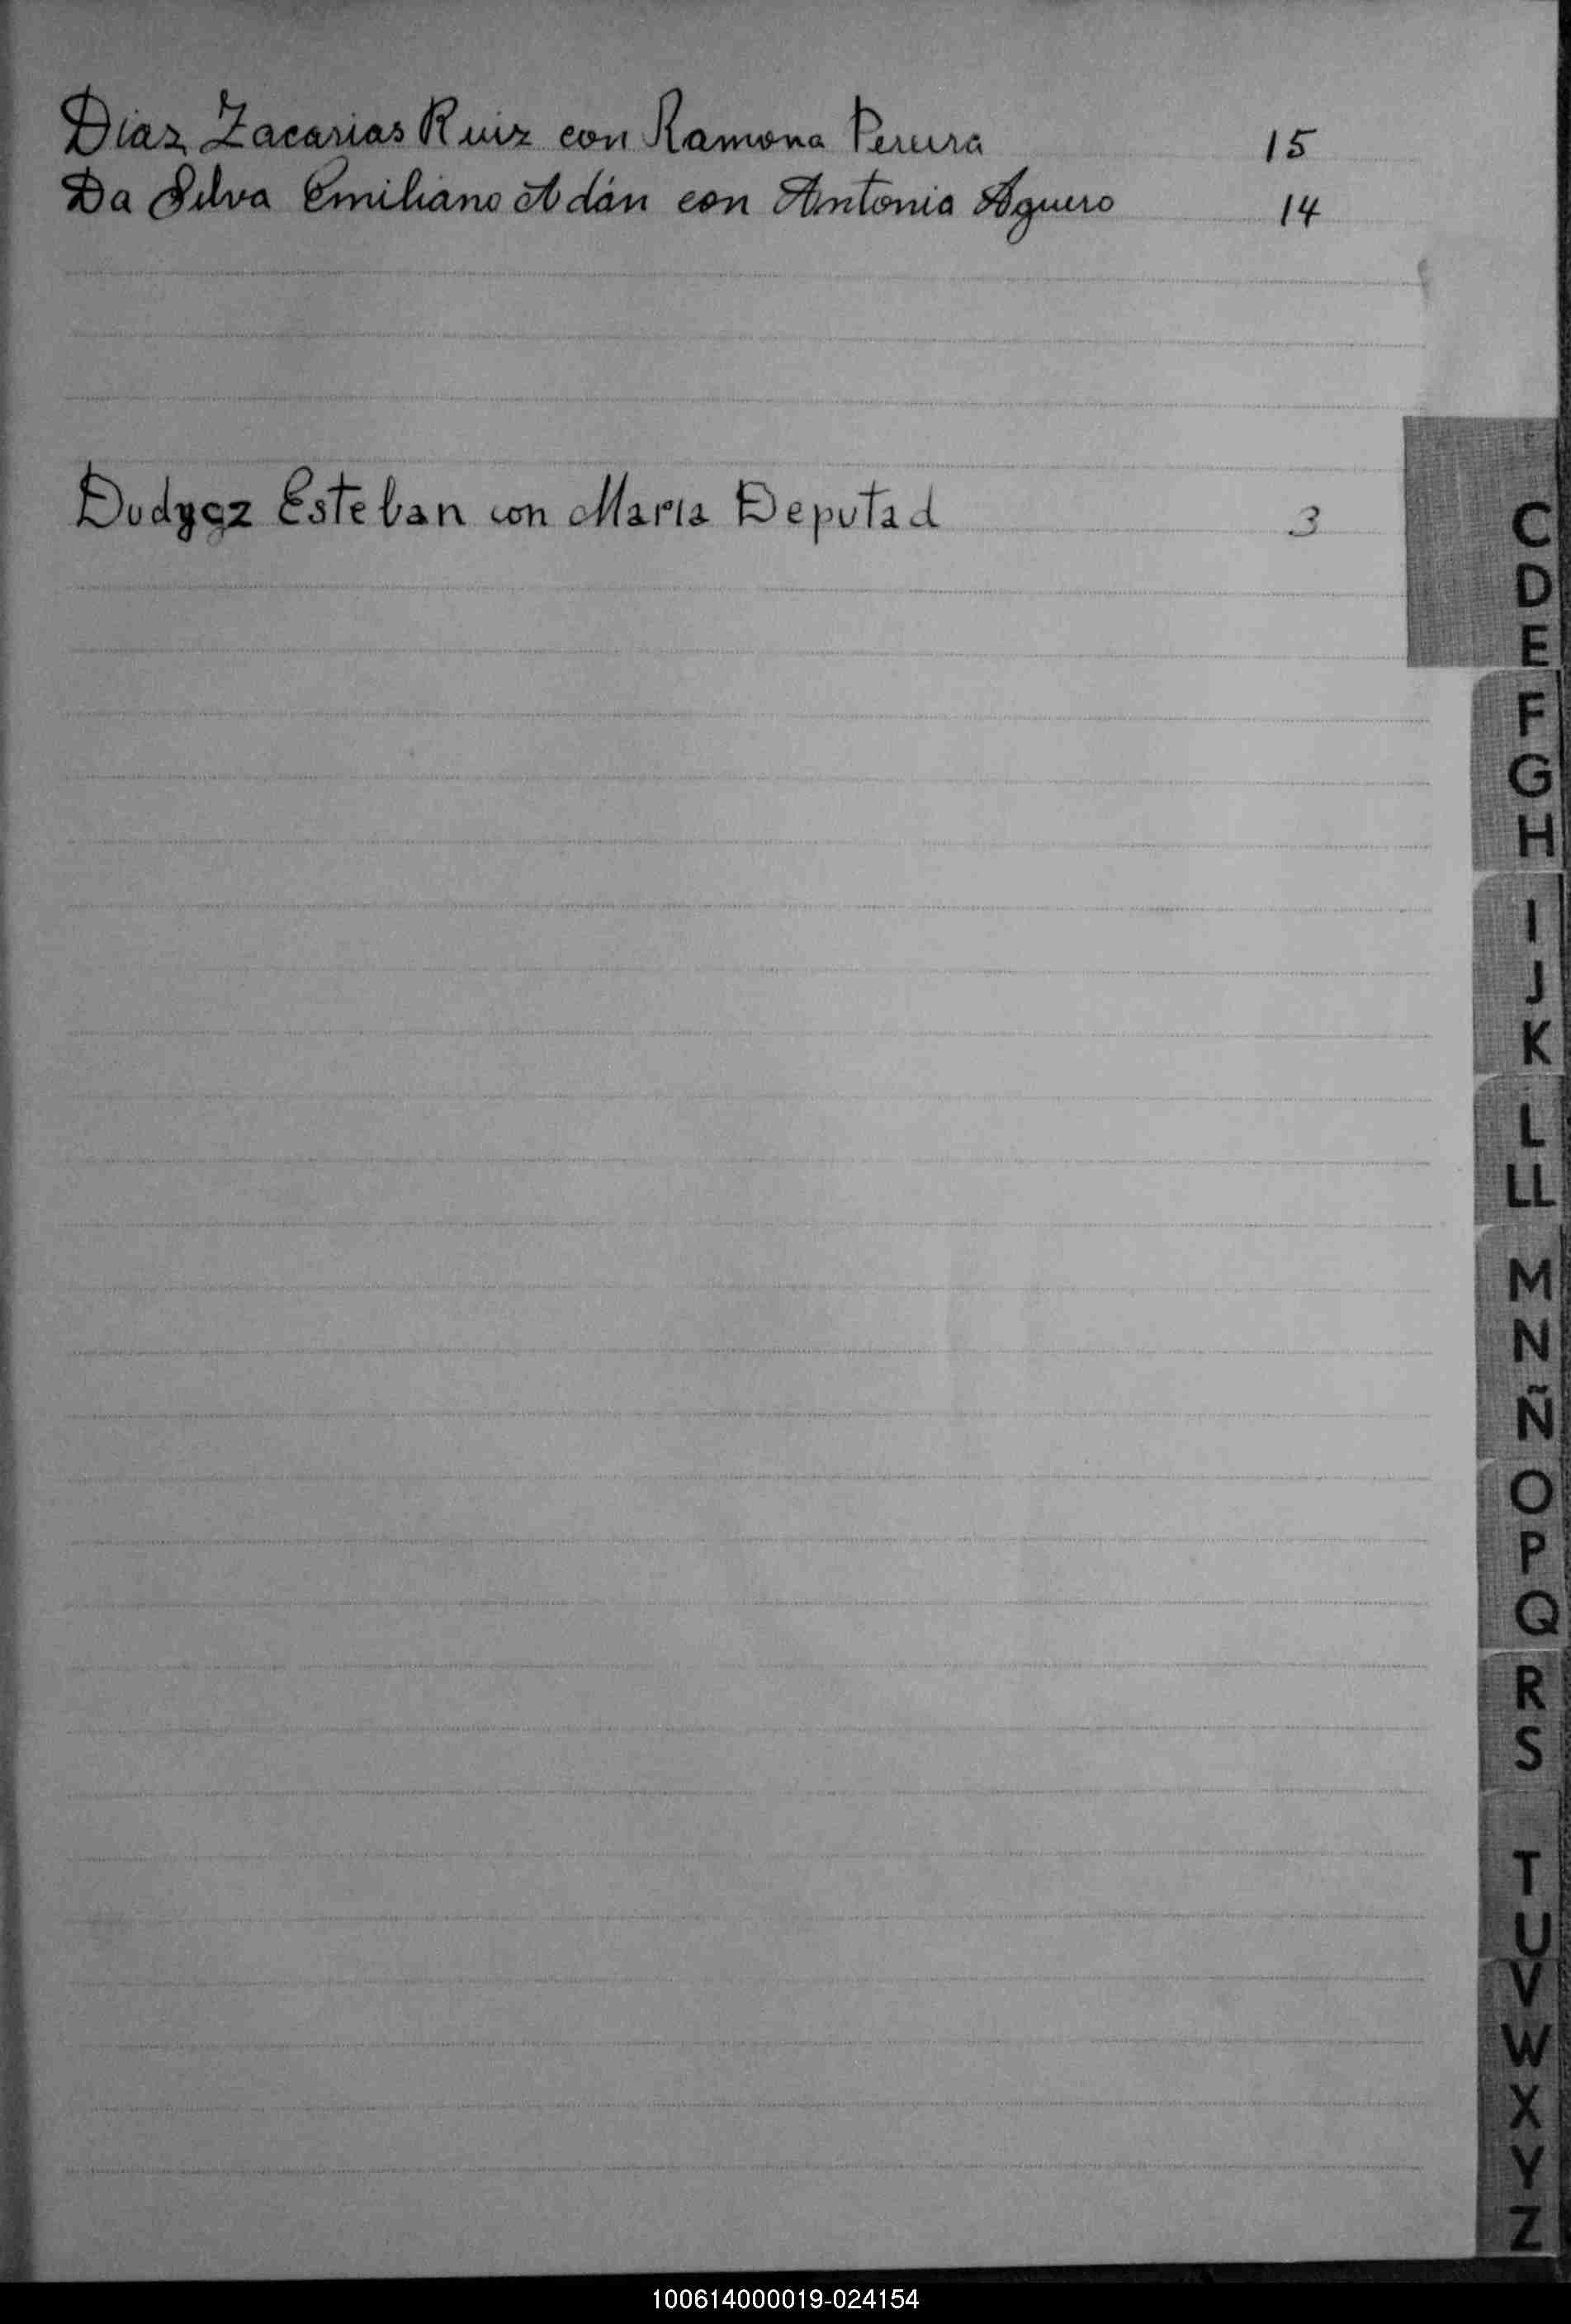 Diaz, Zacarias Ruiz con Ramona Pereira 15
Da Silva Emiliano Adán con Antonia Aguero 14
Esteban con Maria Deputad 3
C
D
E
F
G
H
I
J
K
L
LL
M
N
Ñ
O
P
Q
R
S
T
U
V
W
X
Y
Z
100614000019-024154